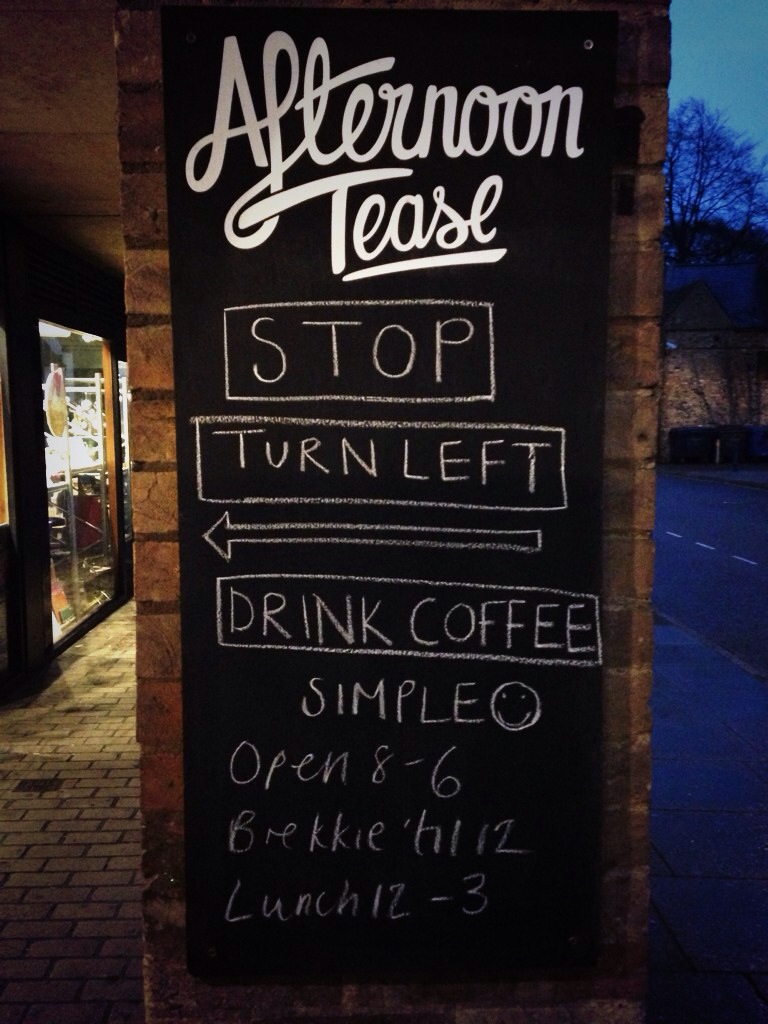 Afternoon
Tease
STOP
TURN LEFT
DRINK COFFEE
SIMPLE
Open 8-6
Brekkie 'til 12
Lunch 12-3